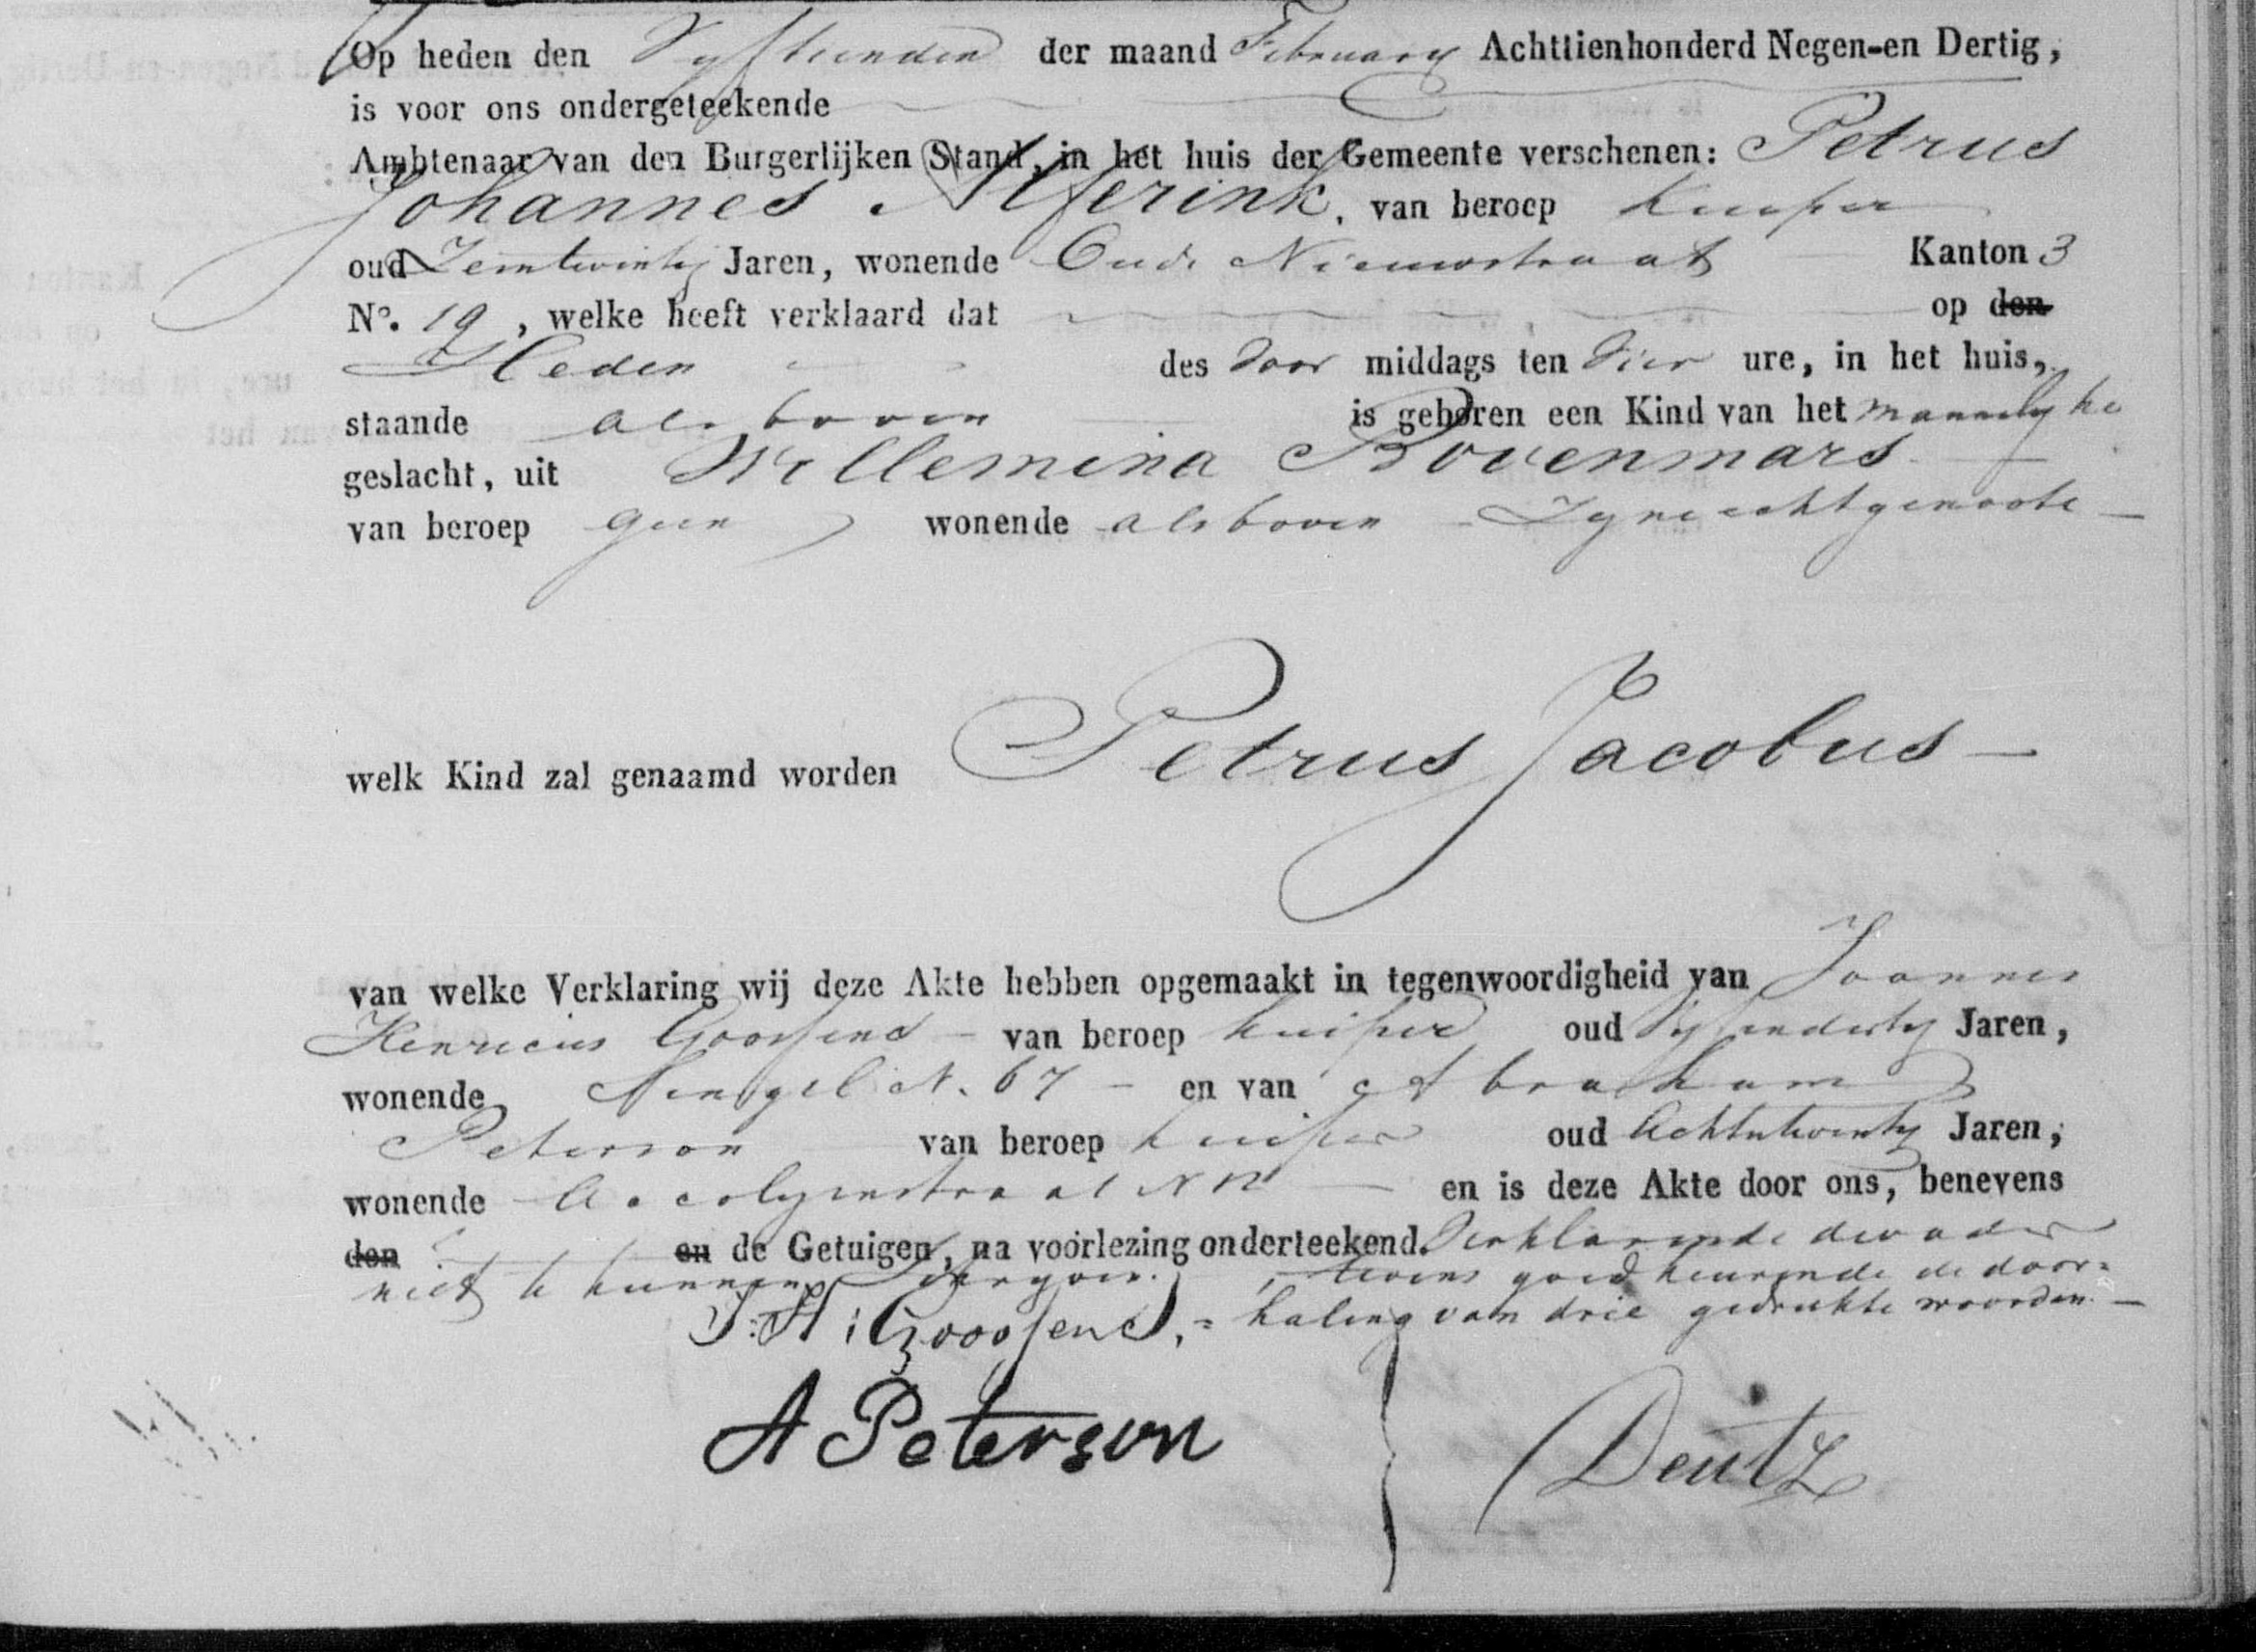 Op heden den Vyftienden der maand February Achttienhonderd Negen-en Dertig,
is voor ons ondergeteekende
Ambtenaar van den Burgerlijken Stand, in het huis der Gemeente verschenen: Petrus
Johannes Alferink, van beroep kuiper
oud Jaren, wonende Oude Nieuwstraat Kanton 3
No. 19, welke heeft verklaard dat op den
Heden des voor middags ten vier ure, in het huis,
staande als boven is geboren een Kind van het mannelyke
geslacht, uit Willemina Bovenmars
van beroep geen wonende als boven Zyne echtgenoote
welk Kind zal genaamd worden Petrus Jacobus
van welke Verklaring wij deze Akte hebben opgemaakt in tegenwoordigheid van Joannes
Henricus Goossens van beroep kuiper oud Vyfendertig Jaren,
wonende Singel N. 67 en van Abraham
Peterson van beroep kuiper oud Achtentwintig Jaren,
wonende en is deze Akte door ons, benevens
den en de Getuigen, na voorlezing onderteekend. Verklarende de vader
niet te kunnen tevens goedkeurende de door=
J: H: Goossens, = haling van drie gedrukte woorden.
A Peterson
Deutz